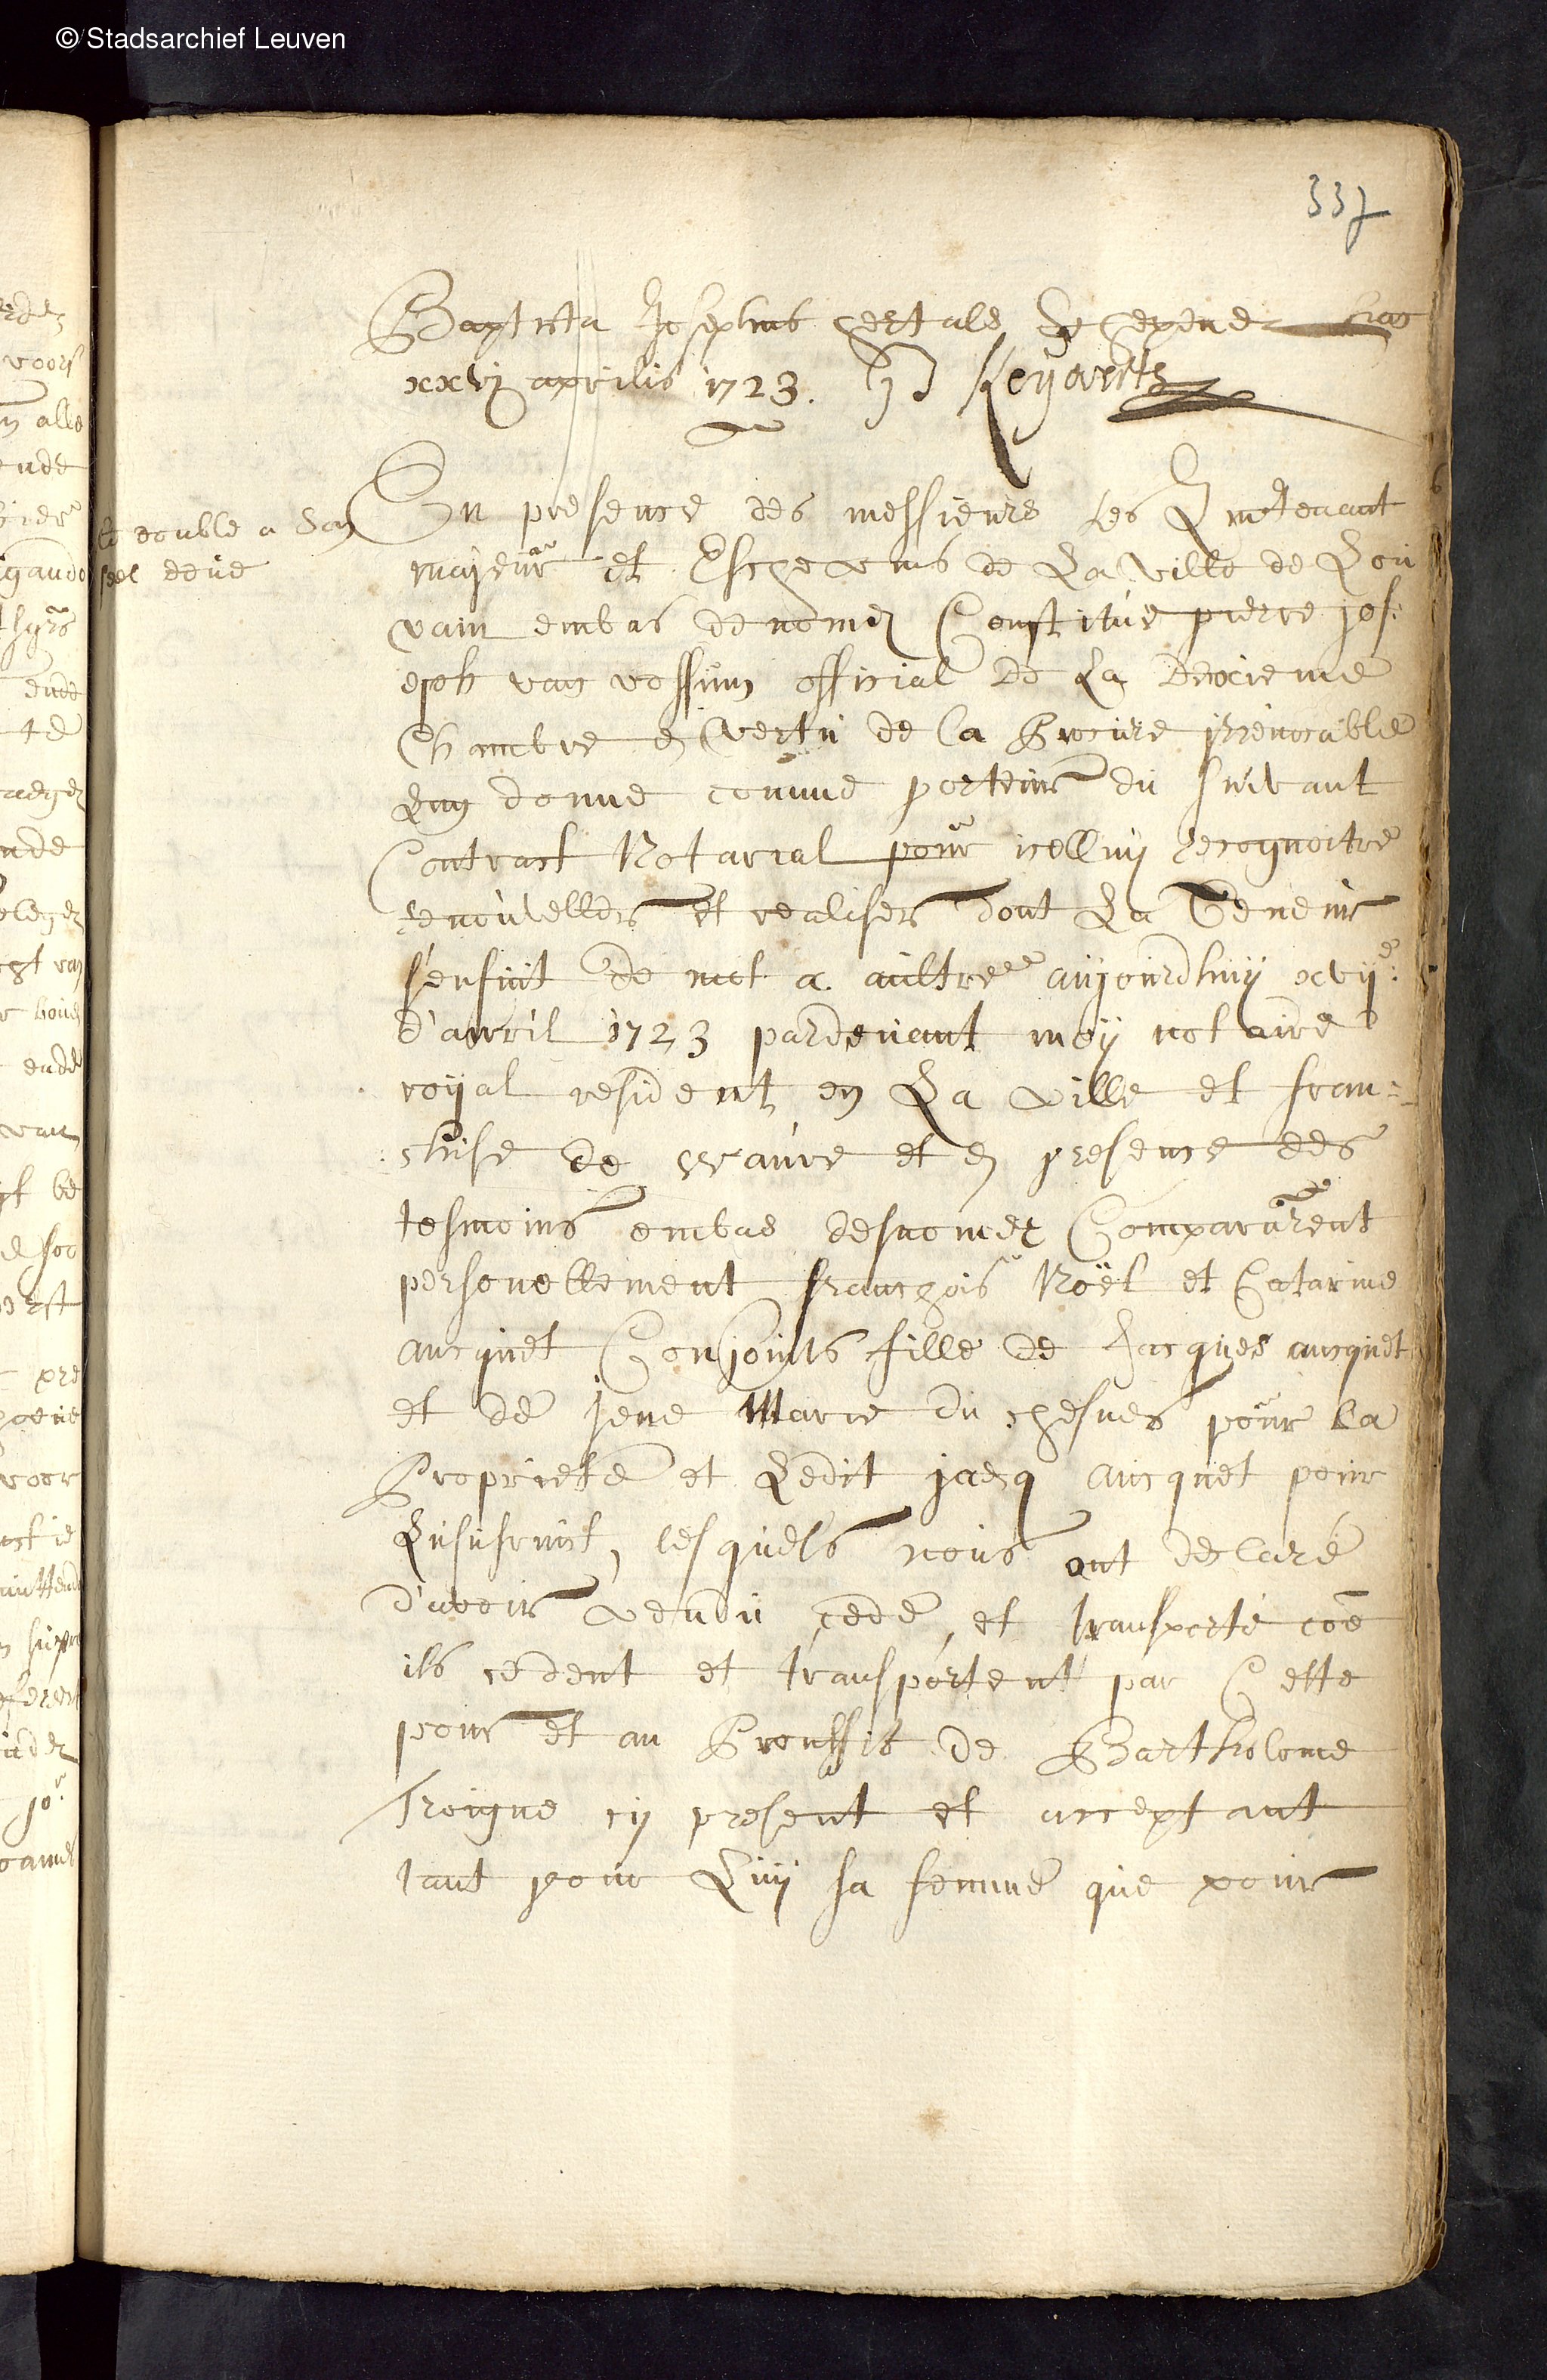 © Stadsarchief Leuven
337
Baptista Josephus hertals Schepenen hac
xxvj aprilis 1723. Keyaerts
le double a son
seel deue
En presence des messieurs Les Lieutenant
mayeur et Eschevins de La ville de Lou
vain embas denomez Constitue pierre jos:
eph van vossum official de La deoxieme
Chambre en vertu de la Procure jrrevocable
Luy donne comme porteur du suivant
Contract Notarial pour icelluy recognoitre
renouveller et realiser dont La Teneur
s'ensuit de mot a aultre aujourdhuy xvije:
d'avvril 1723 pardevant moy notaire
royal resident en La ville et fran=
chise de wavre et en presence des
tesmoins embas desnomez Comparurent
personellement franchois Noël et Catarine
ancquet Conjoints fille de Jacques ancquet
et de Jene Marie du chesnes pour la
Propriete et Ledit jacq ancquet pour
Lusufruict, lesquels nous ont declaré
d'avoir vendu, cede, et transporté coe
ils cedent et transportent par Cette
pour et au Prouffit de Bartholome
Troigne cy present et acceptant
tant pour Luy sa femme que pour